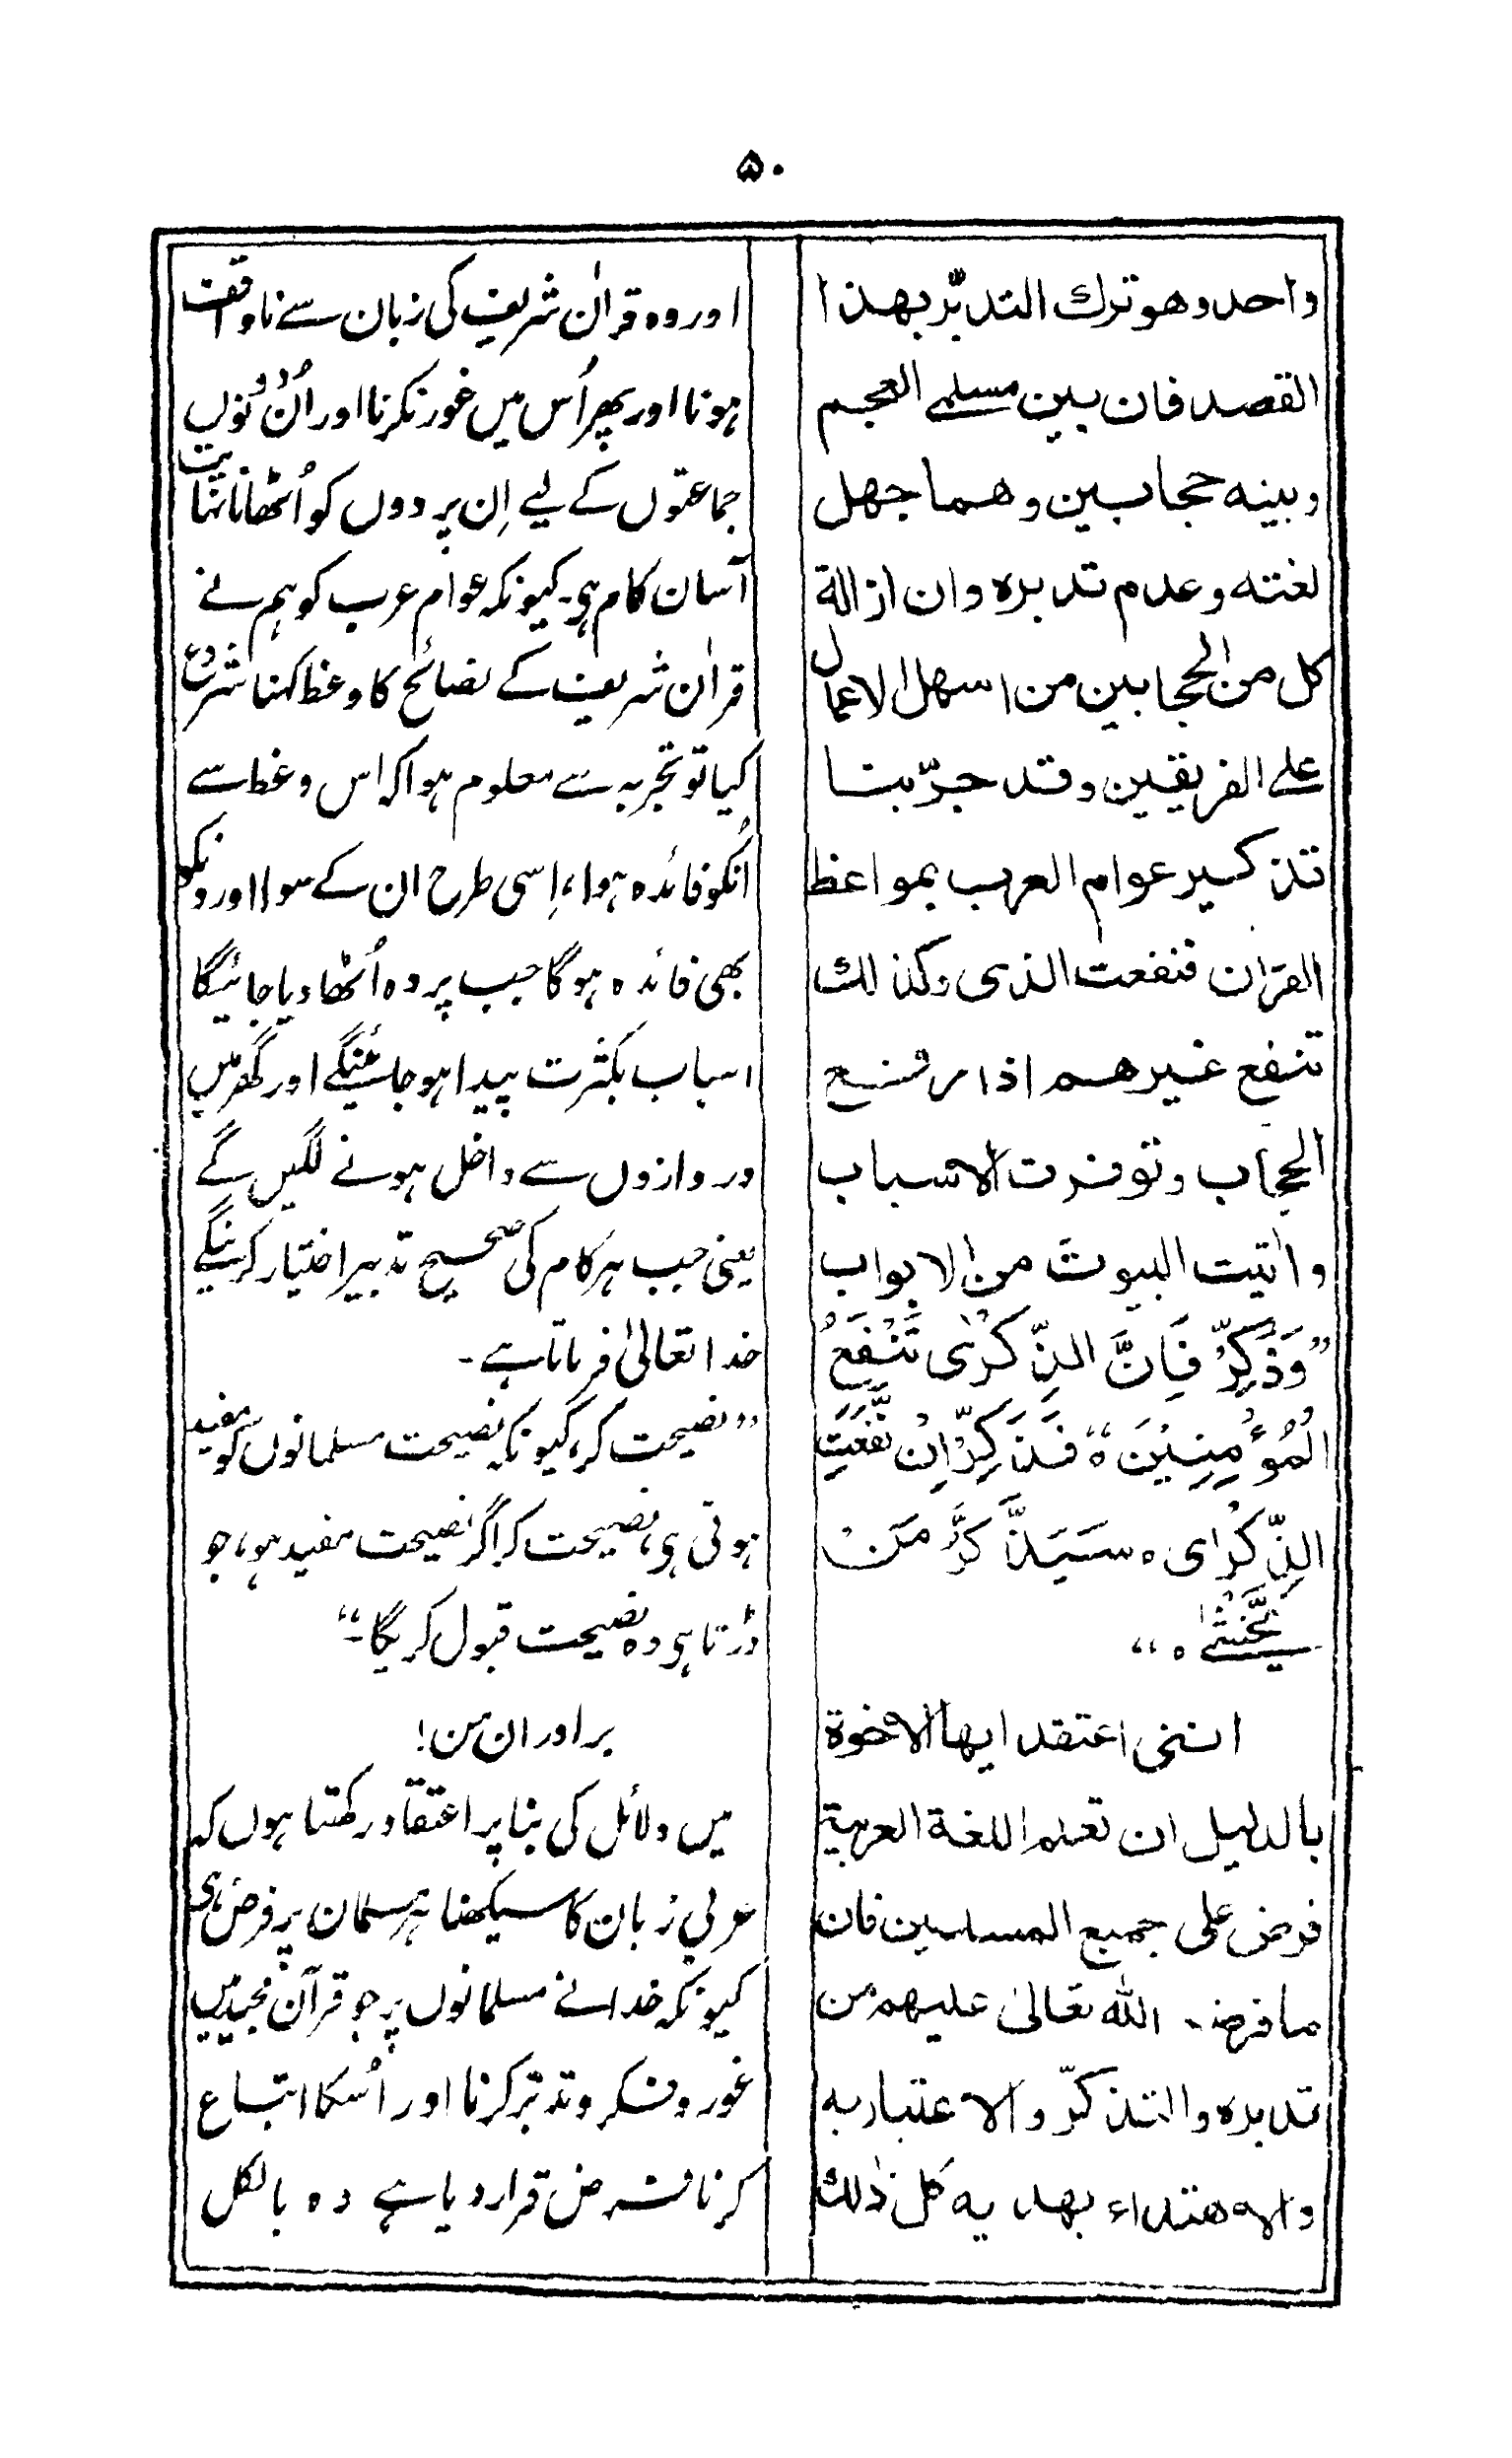 ۵۰
واحد وهو ترك التدبّر بهذا
القصد فان بين مسلمي العجم
وبينه حجابين وهما جهل
لغته وعدم تدبره وان ازالة
كل من الحجابين من اسهل الاعمال
على الفريقين وقد جرّبنا
تذكير عوام العرب بمواعظ
القران فنفعت الذى وكذلك
تنفع غيرهم اذا رفع
الحجاب وتوفرت الاسباب
واتيت البيوت من الابواب
”وَذَكِّرْ فَاِنَّ الذِّكْرٰى تَنْفَعُ
الْمُؤْمِنِيْنَ ه“ فَذَكِّرْ اِنْ نَّفَعَتِ
الذِّكْرٰى ه سَيَذَّكَّرُ مَنْ
يَّخْشٰى ه“
اننى اعتقد ايها الاخوة
بالدليل ان تعلم اللغة العربية
فرض على جميع المسلمين فان
ما فرضه الله تعالىٰ عليهم من
تدبره والتذكّر والاعتبار به
والاهتداء بهديه كل ذٰلك
اور وہ قراٰن شریف کی زبان سے ناواقف
ہونا اور پھر اُس میں غور نکرنا اور اُن دونوں
جماعتوں کے لیے اِن پردوں کو اُٹھانا نہایت
آسان کام ہی۔ کیونکہ عوام عرب کو ہم نے
قراٰن شریف کے نصائح کا وعظ کہنا شروع
کیا تو تجربہ سے معلوم ہوا کہ اس وعظ سے
اُنکو فائدہ ہوا، اِسی طرح ان کے سوا اورونکو
بھی فائدہ ہوگا جب پردہ اُٹھا دیا جائیگا
اسباب بکثرت پیدا ہو جائینگے اور گھر میں
دروازوں سے داخل ہونے لگیں گے
یعنی جب ہر کام کی صحیح تدبیر اختیار کرینگے
خدا تعالیٰ فرماتا ہے۔
”نصیحت کر، کیونکہ نصیحت مسلمانوں کو مفید
ہوتی ہی، نصیحت کر اگر نصیحت مفید ہو، جو
ڈرتا ہی وہ نصیحت قبول کریگا۔“
برادران من!
میں دلائل کی بنا پر اعتقاد رکھتا ہوں کہ
عربی زبان کا سیکھنا ہر مسلمان پر فرض ہی
کیونکہ خدا نے مسلمانوں پر جو قرآن مجید میں
غور و فکر و تدبّر کرنا اور اُسکا اتباع
کرنا فرض قرار دیا ہے وہ بالکل